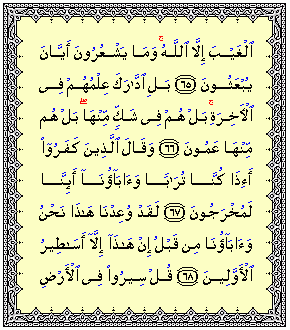 ٱلْغَيْبَ إِلَّا ٱللَّهُ ۚ وَمَا يَشْعُرُونَ أَيَّانَ
يُبْعَثُونَ ﴿٦٥﴾ بَلِ ٱدَّٰرَكَ عِلْمُهُمْ فِى
ٱلْـَٔاخِرَةِ ۚ بَلْ هُمْ فِى شَكٍّ مِّنْهَا ۖ بَلْ هُم
مِّنْهَا عَمُونَ ﴿٦٦﴾ وَقَالَ ٱلَّذِينَ كَفَرُوٓا۟
أَءِذَا كُنَّا تُرَٰبًا وَءَابَآؤُنَآ أَئِنَّا
لَمُخْرَجُونَ ﴿٦٧﴾ لَقَدْ وُعِدْنَا هَٰذَا نَحْنُ
وَءَابَآؤُنَا مِن قَبْلُ إِنْ هَٰذَآ إِلَّآ أَسَٰطِيرُ
ٱلْأَوَّلِينَ ﴿٦٨﴾ قُلْ سِيرُوا۟ فِى ٱلْأَرْضِ